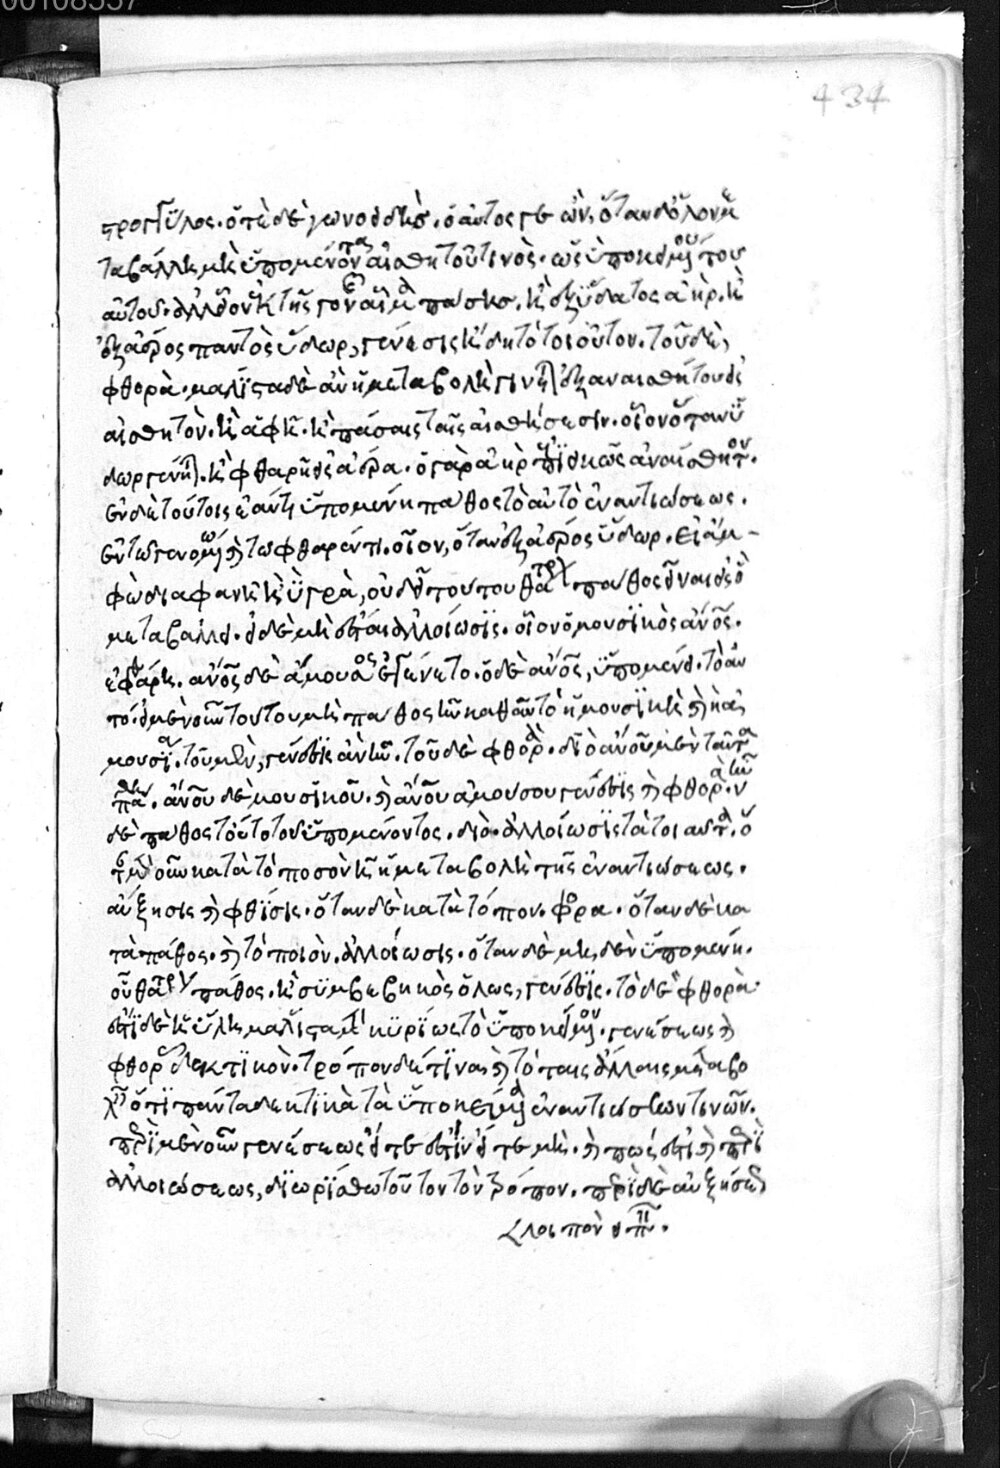 στρογγύλος. ὁτὲ δὲ γωνοειδής. ὁ αὐτός γε ὤν. ὅταν δ' ὅλον με
ταβάλλῃ μὴ ὑπομένοντος αἰσθητοῦ τινός. ὡς ὑποκειμένου τοῦ
αὐτοῦ. ἀλλ' οἷον ἐκ τῆς γονῆς αἷμα πάσης. ἢ ἐξ ὕδατος ἀὴρ. ἢ
ἐξ ἀέρος παντὸς ὕδωρ, γένεσις ἤδη τὸ τοιοῦτον. τοῦ δὲ,
φθορὰ. μάλιστα δὲ ἂν ἡ μεταβολὴ γίνηται ἐξ ἀναισθήτου εἰς
αἰσθητὸν. ἢ ἁφῇ. ἢ πάσαις ταῖς αἰσθήσεσιν. οἷον ὅταν ὕ
δωρ γένηται. ἢ φθαρῇ εἰς ἀέρα. ὁ γὰρ ἀὴρ ἐπιεικῶς ἀναίσθητον.
ἐν δὲ τούτοις ἐάν τι ὑπομένῃ πάθος τὸ αὐτὸ ἐναντιώσεως.
ἐν τῷ γενομένῳ καὶ τῷ φθαρέντι. οἷον, ὅταν ἐξ ἀέρος ὕδωρ. εἰ ἄμ-
φω διαφανῆ ἢ ὑγρὰ, οὐ δεῖ τούτου θάτερον πάθος εἶναι εἰς ὃ
μεταβάλλει. εἰ δὲ μὴ ἔσται ἀλλοίωσις. οἷον ὁ μουσικὸς ἄνος.
ἐφθάρη. ἄνος δὲ ἄμουσος ἐγένετο. ὁ δὲ ἄνος, ὑπομένει. τὸ αὐ
τό. εἰ μὲν οὖν τούτου μὴ πάθος ἦν καθ' αὑτὸ ἡ μουσικὴ καὶ ἡ ἀ
μουσία. τοῦ μὲν, γένεσις ἂν ἦν. τοῦ δὲ φθορὰ. διὸ ἀνου μὲν ταῦτα
πάθη. ἀνου δὲ μουσικοῦ. καὶ ἀνου ἀμούσου γένεσις καὶ φθορὰ. νῦν
δὲ πάθος τοῦτο τοῦ ὑπομένοντος. διὸ. ἀλλοίωσις τὰ τοιαῦτα. ὅ
ταν μὲν οὖν κατὰ τὸ ποσὸν ᾖ ἡ μεταβολὴ τῆς ἐναντιώσεως.
αὔξησις καὶ φθίσις. ὅταν δὲ κατὰ τόπον. φορά. ὅταν δὲ κα
τὰ πάθος. καὶ τὸ ποιὸν. ἀλλοίωσις. ὅταν δὲ μηδὲν ὑπομένῃ.
οὗ θάτερον πάθος. ἢ συμβεβηκὸς ὅλως, γένεσις. τὸ δὲ φθορὰ.
ἔστι δὲ ἡ ὕλη μάλιστα μὲν κυρίως τὸ ὑποκείμενον. γενέσεως καὶ
φθορᾶς δεκτικὸν. τρόπον δέ τινα καὶ τὸ ταῖς ἄλλαις μεταβο
λαῖς ὅτι πάντα δεκτικὰ τὰ ὑποκείμενα ἐναντιώσεων τινῶν.
περὶ μὲν οὖν γενέσεως εἴτε ἔστιν εἴτε μὴ. καὶ πῶς ἔστι καὶ περὶ
ἀλλοιώσεως, διωρίσθω τοῦτον τὸν τρόπον. περὶ δὲ αὐξήσεως
λοιπὸν εἰπεῖν.